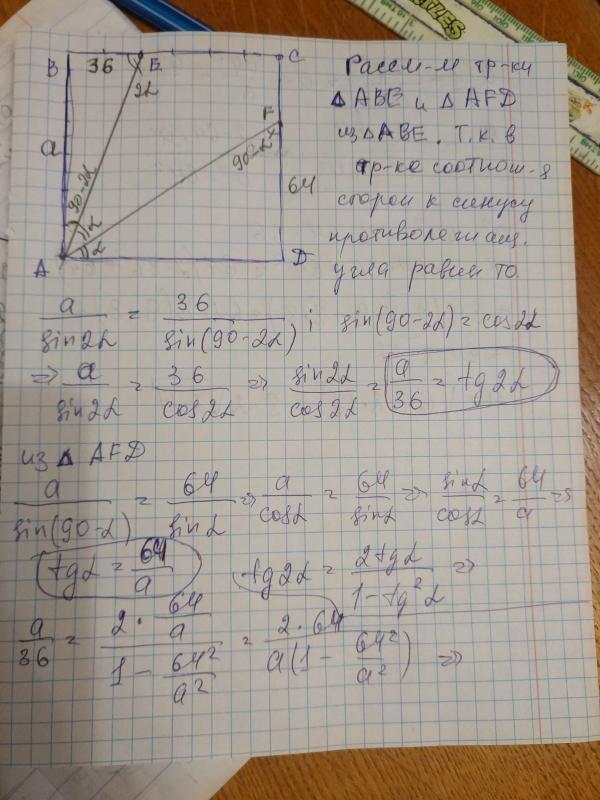 B 36 E C
2α
F
a
90-α
64
90-2α
α
α
A D
Рассм-м тр-ки
△ABE и △AFD
из △ABE. Т.к. в
тр-ке соотнош-я
сторон к синусу
противолежащ.
угла равны то
a/sin2α = 36/sin(90-2α) ; sin(90-2α) = cos2α
=> a/sin2α = 36/cos2α => sin2α/cos2α = a/36 = tg2α
из △ AFD
a/sin(90-α) = 64/sinα => a/cosα = 64/sinα => sinα/cosα = 64/a =>
tgα = 64/a tg2α = 2tgα/1-tg²α =>
a/36 = 2·64/a / 1 - 64²/a² = 2·64/a(1 - 64²/a²) =>